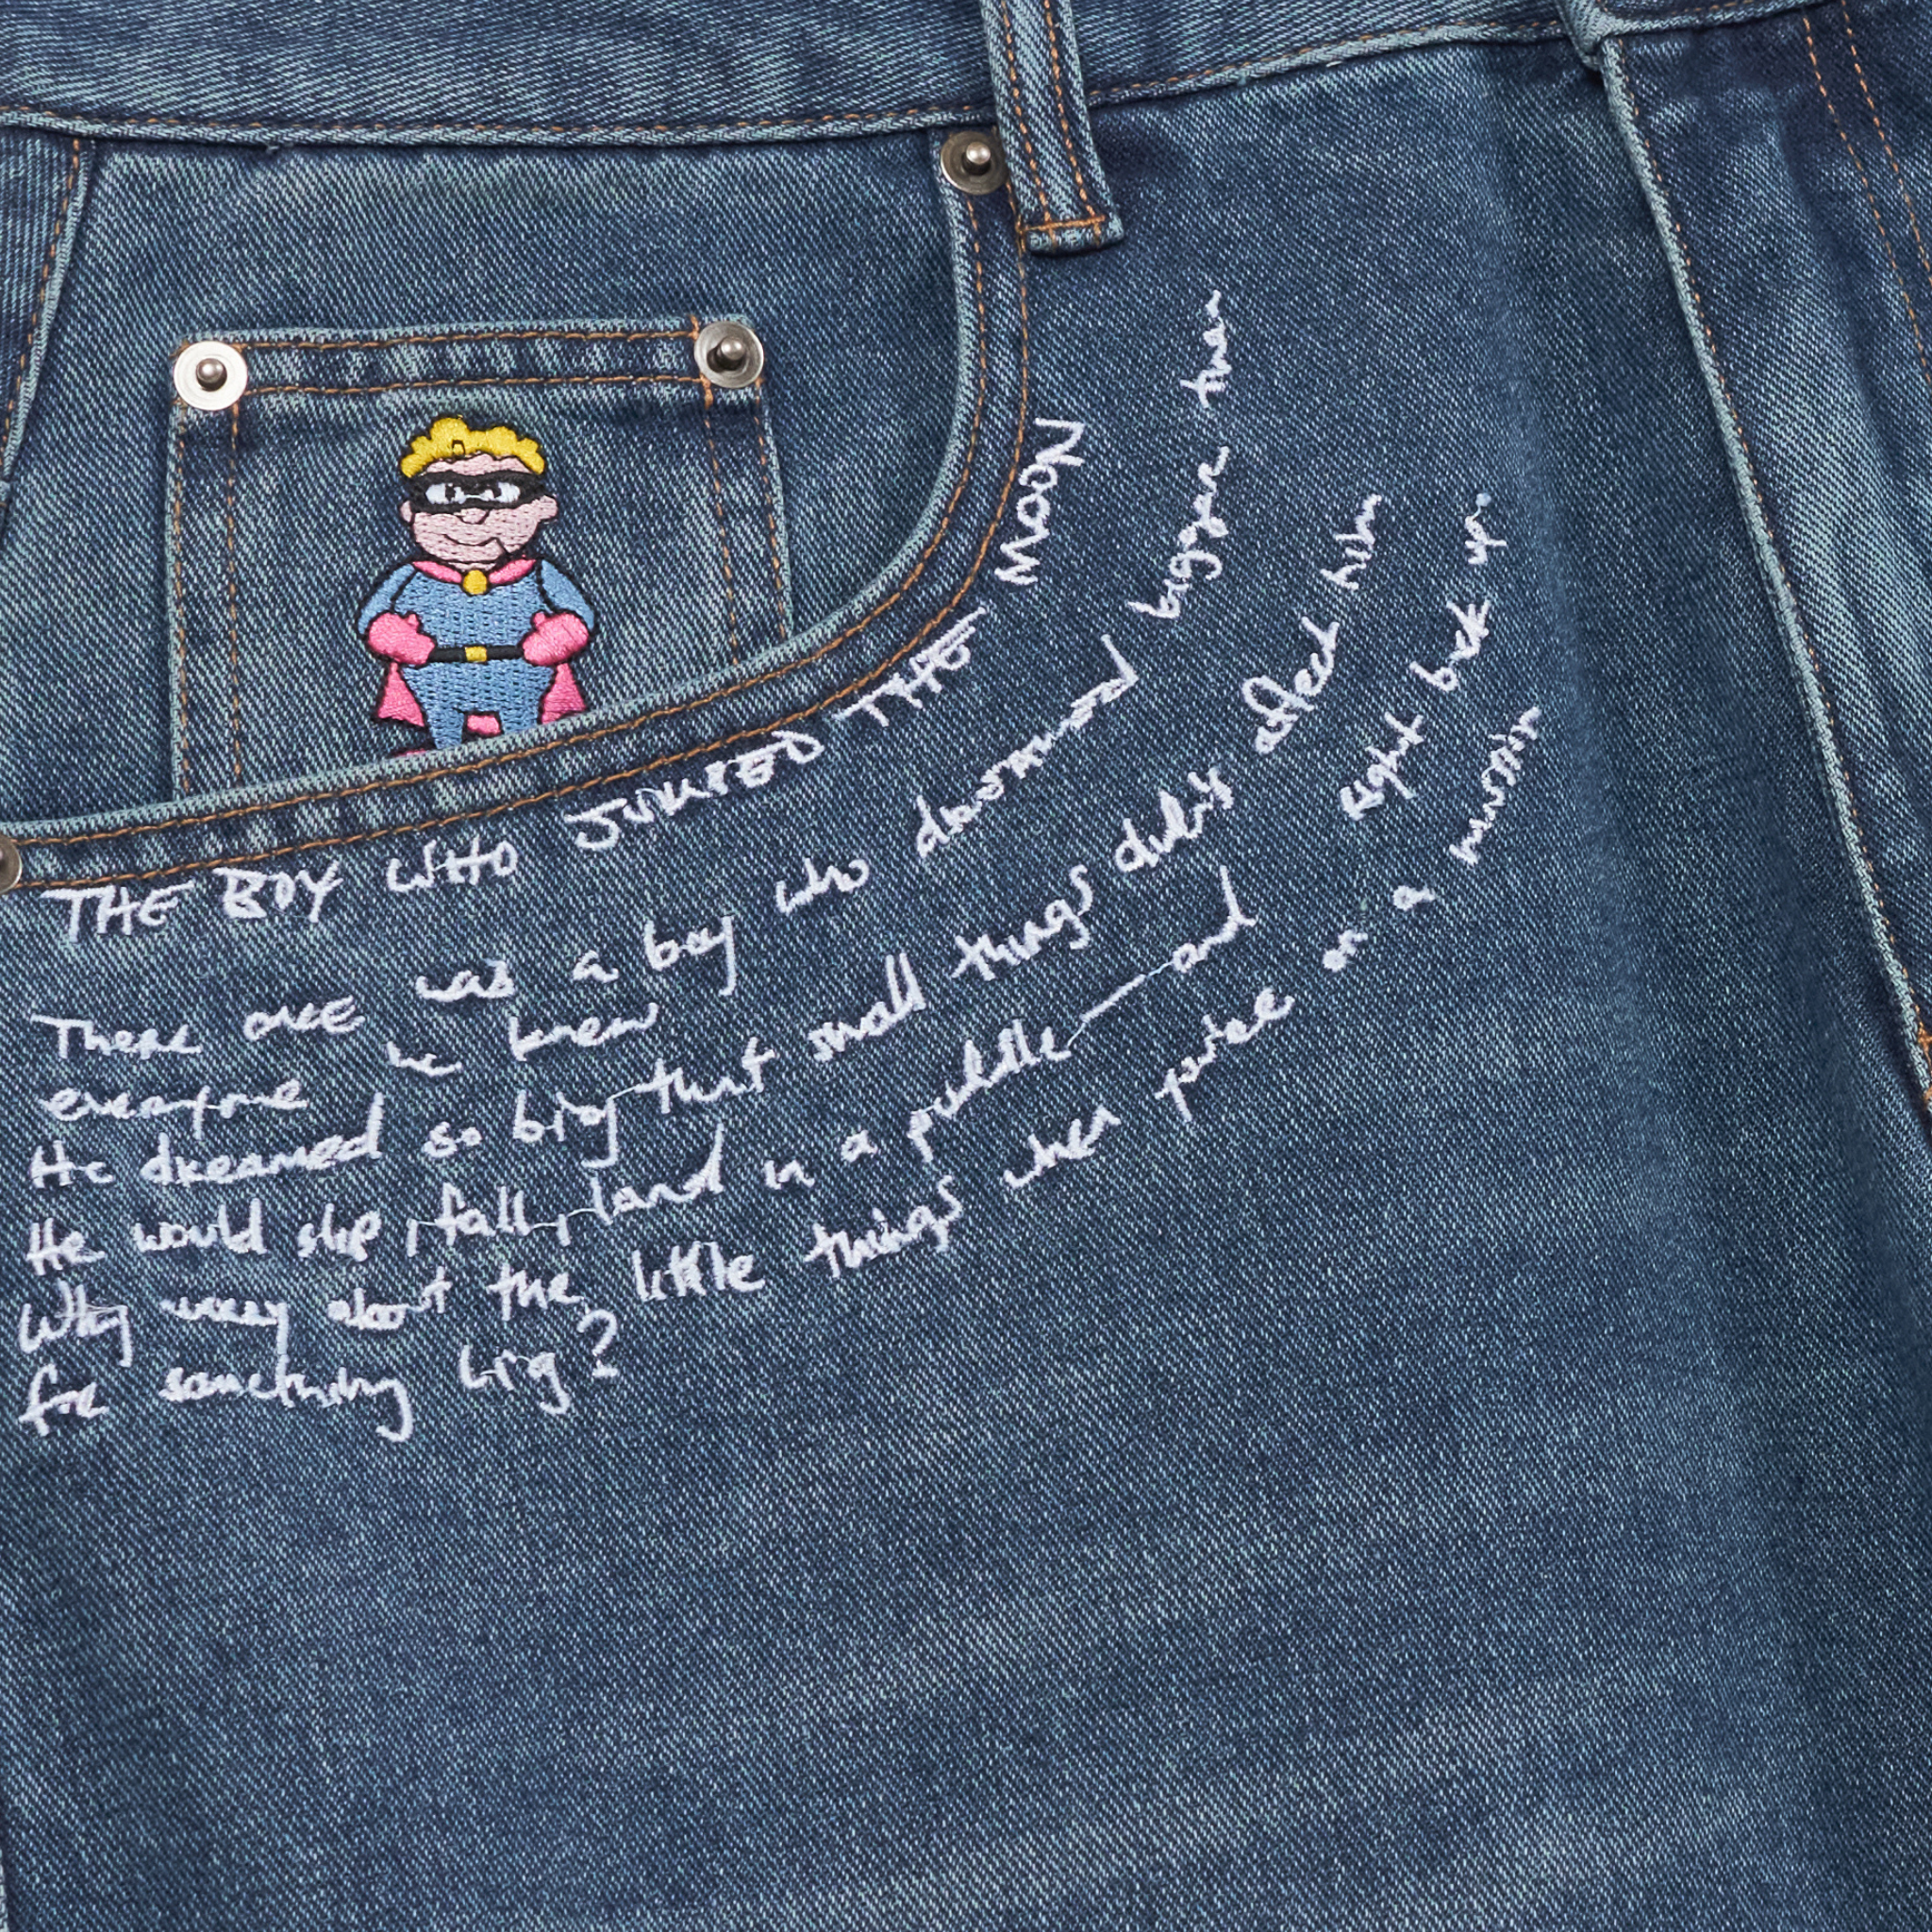 THE BOY WHO JUMPED THE MOON
There once was a boy who dreamed bigger than
everyone he knew
He dreamed so big that small things didn't affect him
He would slip, fall, land in a puddle and right back up.
Why worry about the little things when you're on a mission
for something big?